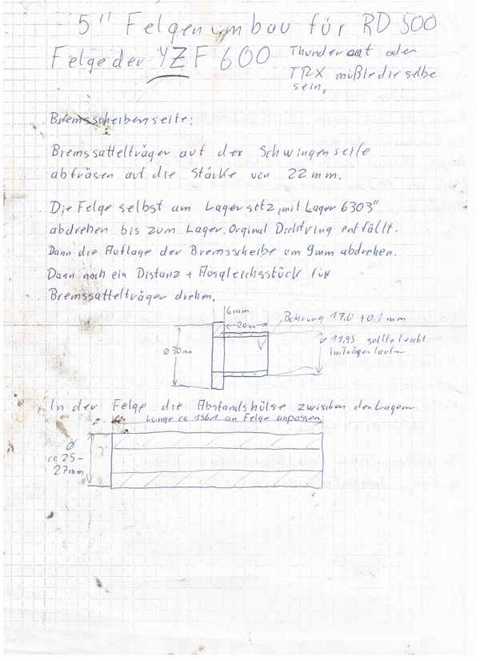 5" Felgenumbau für RD 500
Felge der YZF 600 Thundercat oder
TRX müßte dieselbe
sein.
Bremsscheibenseite:
Bremssattelträger auf der Schwingenseite
abfräsen auf die Stärke von 22 mm.
Die Felge selbst am Lagersitz "mit Lager 6303"
abdrehen bis zum Lager. Orginal Dichtring entfällt.
Dann die Auflage der Bremsscheibe um 9mm abdrehen.
Dann noch ein Distanz + Ausgleichsstück für
Bremssattelträger drehen.
6mm
20mm
Bohrung 17,0 +0,1 mm
ø 30mm
sollte leicht
In der Felge die Abstandshülse zwischen den Lagern
Länge ca an Felge anpassen
ø
ca 25-
27mm